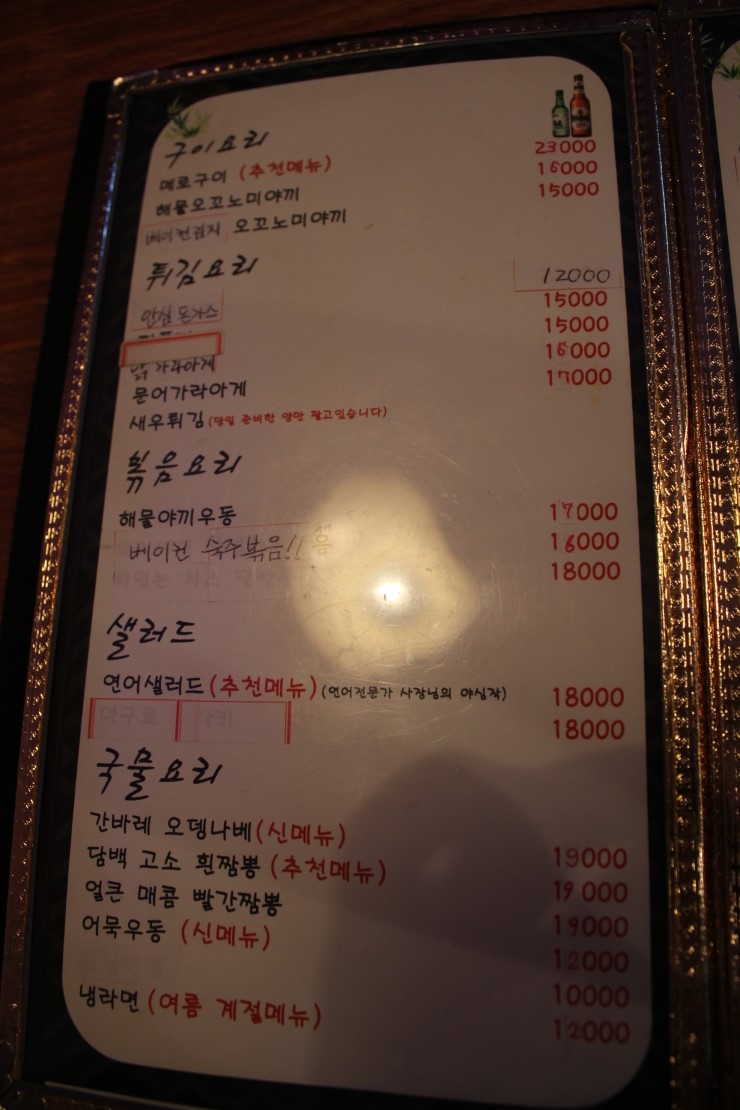 구이요리
메로구이 (추천메뉴) 23000
해물오꼬노미야끼 16000
베이컨김치 오꼬노미야끼 15000
튀김요리
안심돈가스 12000
15000
닭가라아게 15000
문어가라아게 16000
새우튀김 (당일 준비한 양만 팔고있습니다) 17000
볶음요리
해물야끼우동 17000
베이컨 숙주볶음 16000
18000
샐러드
연어샐러드 (추천메뉴) (연어전문가 사장님의 야심작) 18000
18000
국물요리
간바레 오뎅나베 (신메뉴) 19000
담백 고소 흰짬뽕 (추천메뉴) 19000
얼큰 매콤 빨간짬뽕 19000
어묵우동 (신메뉴) 12000
10000
냉라면 (여름 계절메뉴) 12000